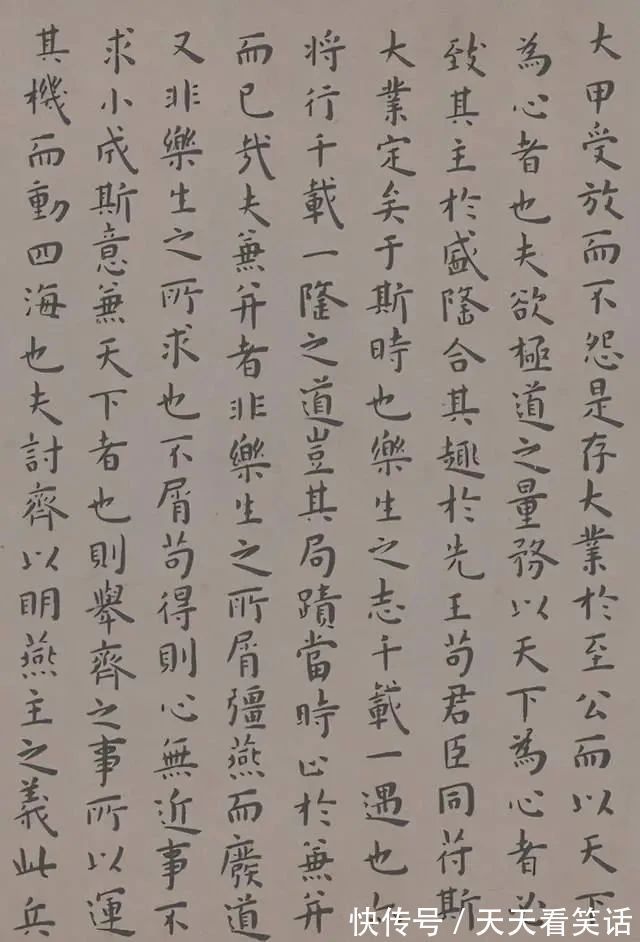 大甲受放而不怨是存大業於至公而以天下
為心者也夫欲極道之量務以天下為心者必
致其主於盛隆合其趣於先王苟君臣同苻斯
大業定矣于斯時也樂生之志千載一遇也
將行千載一隆之道豈其局蹟當時止於兼并
而已哉夫兼并者非樂生之所屑彊燕而廢道
又非樂生之所求也不屑苟得則心無近事不
求小成斯意兼天下者也則舉齊之事所以運
其機而動四海也夫討齊以明燕主之義此兵
快传号/天天看笑话